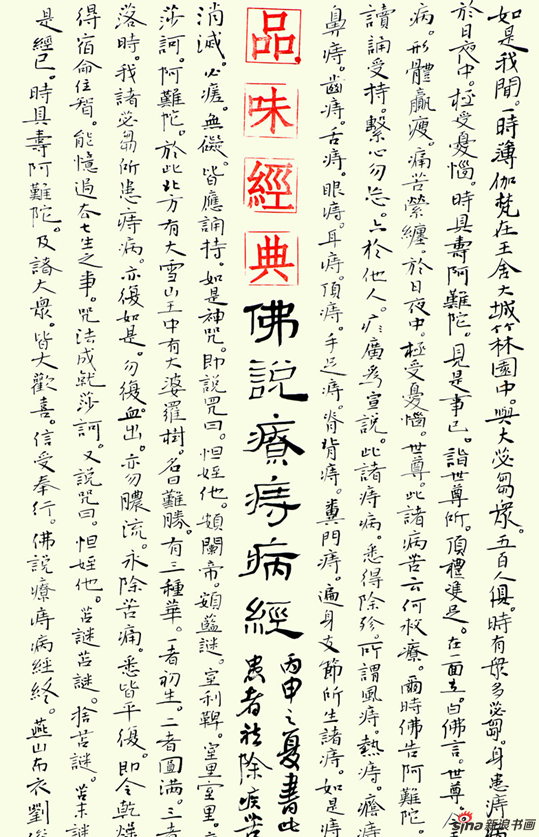 如是我聞。一時薄伽梵在王舍大城竹林園中。與大苾芻眾。五百人俱。時有眾多苾芻。身患痔
於日夜中。極受憂惱。時具壽阿難陀。見是事已。詣世尊所。頂禮雙足。在一面立。白佛言。世尊
病。形體羸瘦。痛苦縈纏。於日夜中。極受憂惱。世尊。此諸病苦云何救療。爾時佛告阿難陀
讀誦受持。繫心勿忘。亦於他人。廣為宣說。此諸痔病。悉得除殄。所謂風痔。熱痔。癊痔
鼻痔。齒痔。舌痔。眼痔。耳痔。頂痔。手足痔。脊背痔。糞門痔。遍身支節所生諸痔。如是痔
品味經典
佛說療痔病經
丙申之夏書此
患者祛除疾苦
消滅。必瘥。無礙。皆應誦持。如是神咒。即說咒曰。怛姪他。頞闌帝。頞藍謎。室利鞞。室里室里。
莎訶。阿難陀。於此北方有大雪山王中有大婆羅樹。名曰難勝。有三種華。一者初生。二者圓滿。三者
落時。我諸苾芻所患痔病。亦復如是。勿復血出。亦勿膿流。永除苦痛。悉皆平復。即令乾燥
得宿命住智。能憶過去七生之事。咒法成就莎訶。又說咒曰。怛姪他。苫謎苫謎。捨苫謎。苫末謎
是經已。時具壽阿難陀。及諸大眾。皆大歡喜。信受奉行。佛說療痔病經終。燕山布衣劉
sina新浪书画